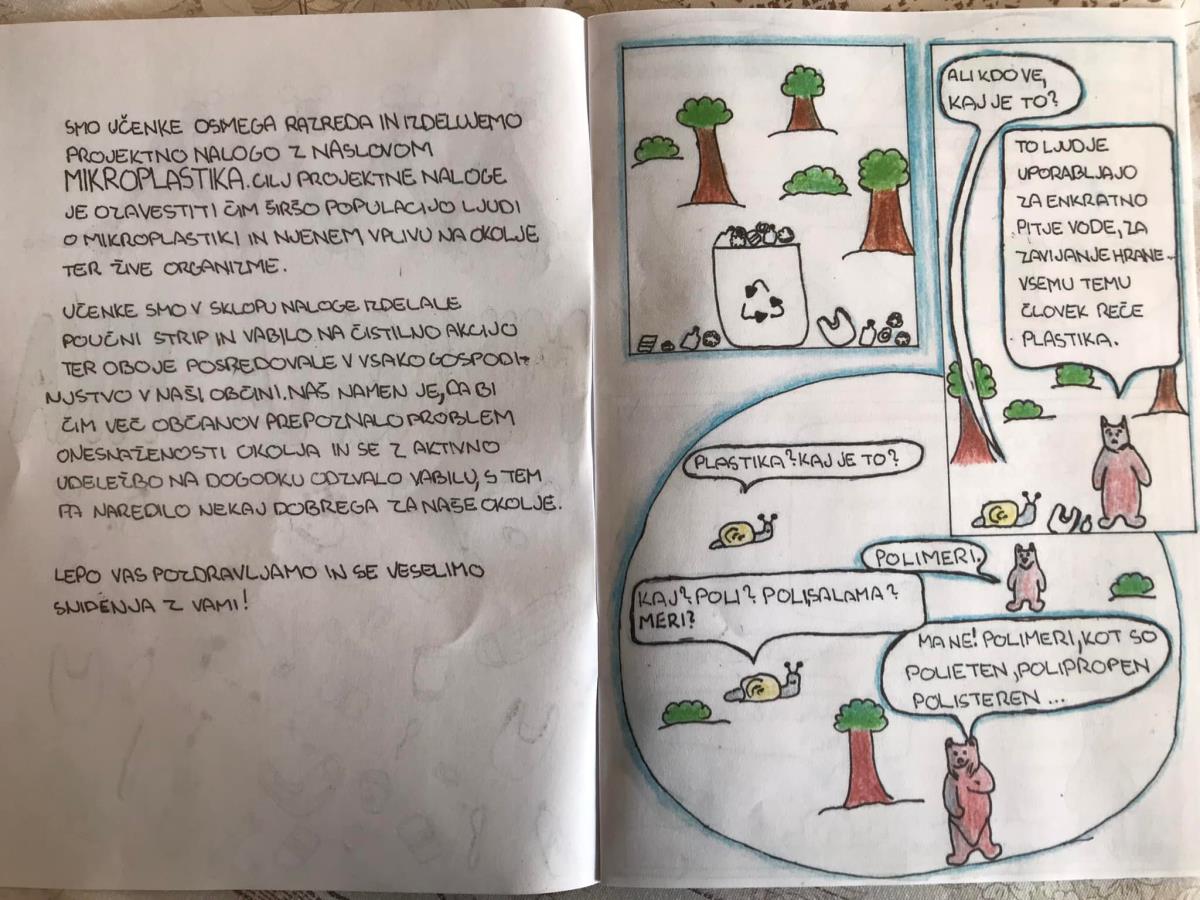 SMO UČENKE OSMEGA RAZREDA IN IZDELUJEMO
PROJEKTNO NALOGO Z NASLOVOM
MIKROPLASTIKA. CILJ PROJEKTNE NALOGE
JE OZAVESTITI ČIM ŠIRŠO POPULACIJO LJUDI
O MIKROPLASTIKI IN NJENEM VPLIVU NA OKOLJE
TER ŽIVE ORGANIZME.
UČENKE SMO V SKLOPU NALOGE IZDELALE
POUČNI STRIP IN VABILO NA ČISTILNO AKCIJO
TER OBOJE POSREDOVALE V VSAKO GOSPODI-
NJSTVO V NAŠI OBČINI. NAŠ NAMEN JE, DA BI
ČIM VEČ OBČANOV PREPOZNALO PROBLEM
ONESNAŽENOSTI OKOLJA IN SE Z AKTIVNO
UDELEŽBO NA DOGODKU ODZVALO VABILU, S TEM
PA NAREDILO NEKAJ DOBREGA ZA NAŠE OKOLJE.
LEPO VAS POZDRAVLJAMO IN SE VESELIMO
SNIDENJA Z VAMI!
ALI KDO VE,
KAJ JE TO?
TO LJUDJE
UPORABLJAJO
ZA ENKRATNO
PITJE VODE, ZA
ZAVIJANJE HRANE.
VSEMU TEMU
ČLOVEK REČE
PLASTIKA.
PLASTIKA? KAJ JE TO?
POLIMERI.
KAJ? POLI? POLI,SALAMA?
MERI?
MA NE! POLIMERI, KOT SO
POLIETEN, POLIPROPEN
POLISTEREN ...